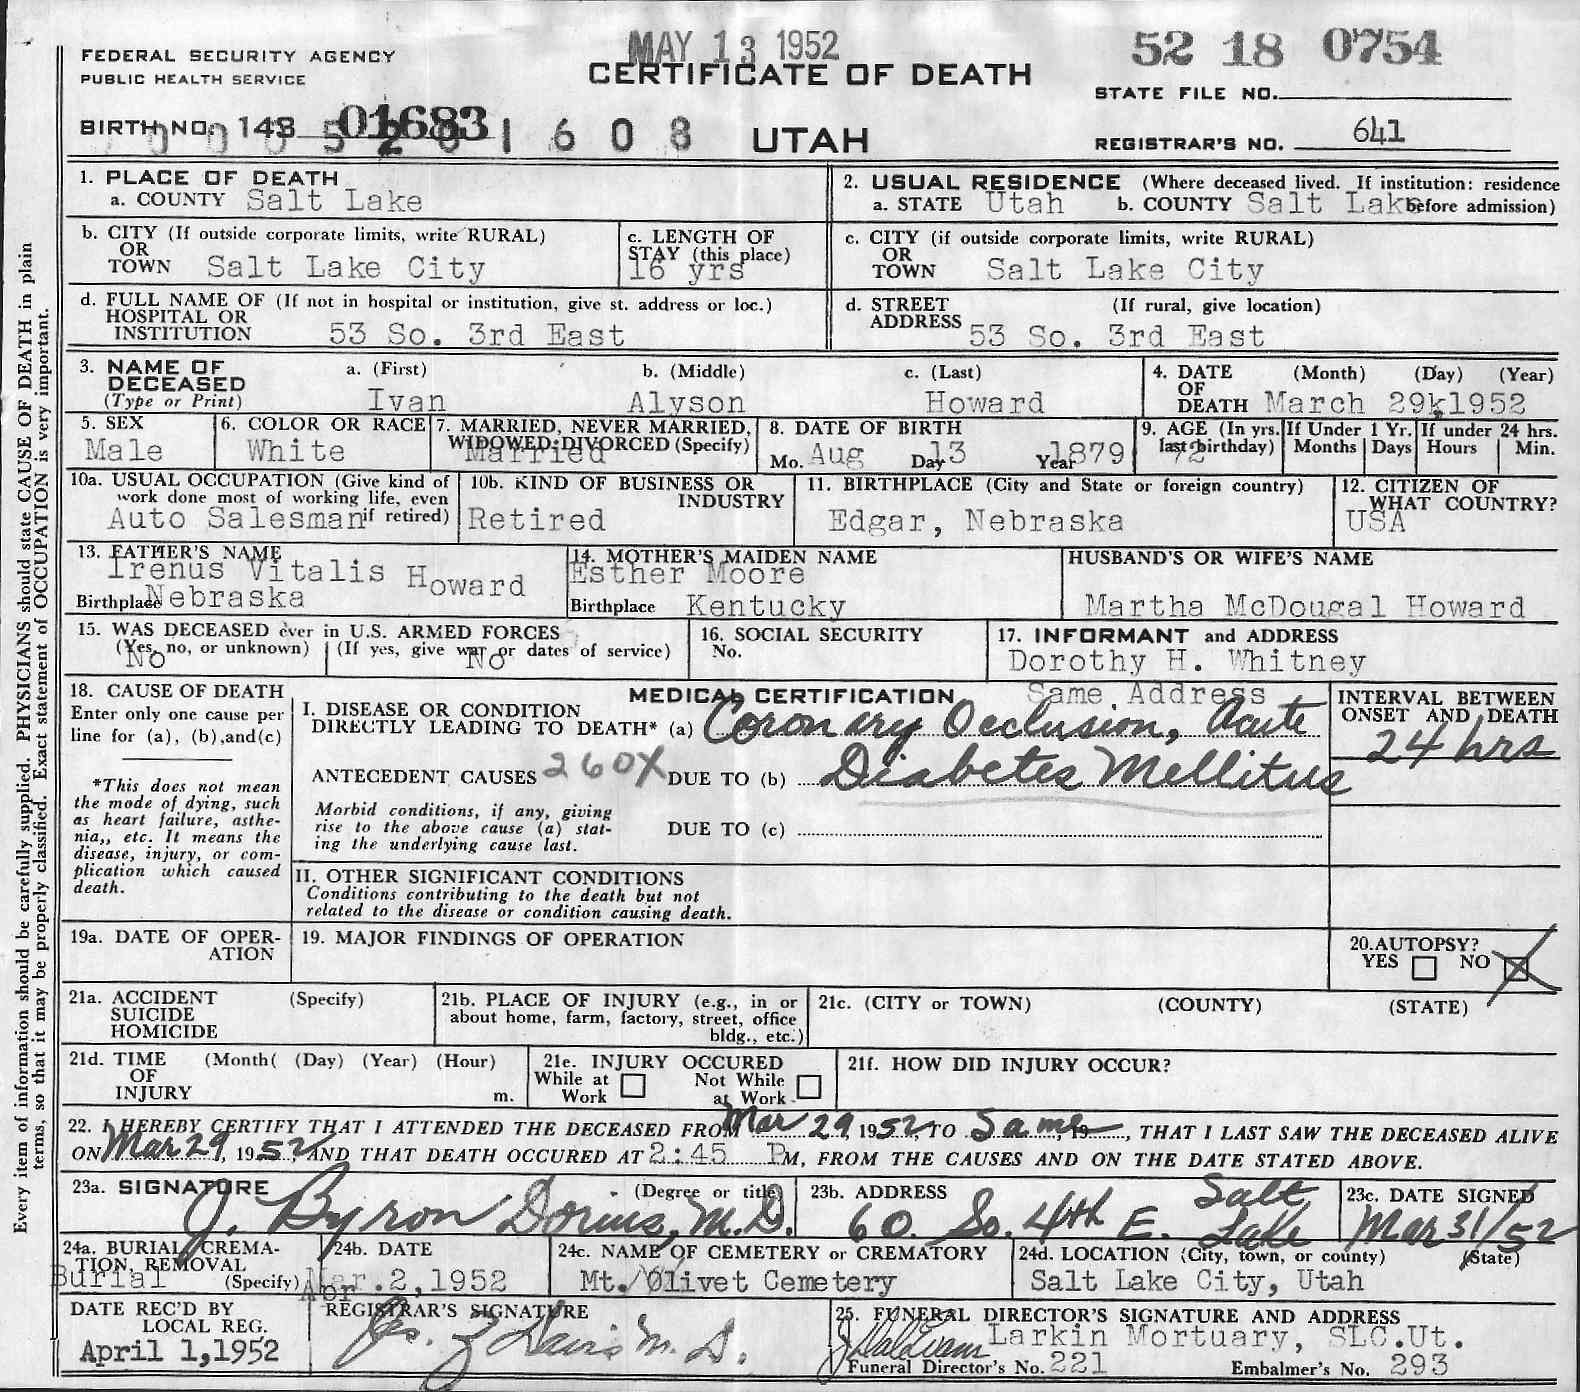 MAY 13 1952
52 18 0754
FEDERAL SECURITY AGENCY
PUBLIC HEALTH SERVICE
CERTIFICATE OF DEATH
STATE FILE NO.
BIRTH NO. 143 01683
1 6 0 8
UTAH
REGISTRAR'S NO. 641
1. PLACE OF DEATH
a. COUNTY Salt Lake
2. USUAL RESIDENCE (Where deceased lived. If institution: residence before admission)
a. STATE Utah b. COUNTY Salt Lake
b. CITY (If outside corporate limits, write RURAL)
OR
TOWN Salt Lake City
c. LENGTH OF
STAY (this place)
16 yrs
c. CITY (if outside corporate limits, write RURAL)
OR
TOWN Salt Lake City
d. FULL NAME OF (If not in hospital or institution, give st. address or loc.)
HOSPITAL OR
INSTITUTION 53 So. 3rd East
d. STREET (If rural, give location)
ADDRESS 53 So. 3rd East
3. NAME OF
DECEASED
(Type or Print)
a. (First) b. (Middle) c. (Last)
Ivan Alyson Howard
4. DATE (Month) (Day) (Year)
OF
DEATH March 29, 1952
5. SEX
Male
6. COLOR OR RACE
White
7. MARRIED, NEVER MARRIED,
WIDOWED, DIVORCED (Specify)
Married
8. DATE OF BIRTH
Mo. Aug Day 13 Year 1879
9. AGE (In yrs. last birthday)
72
If Under 1 Yr.
Months Days
If under 24 hrs.
Hours Min.
10a. USUAL OCCUPATION (Give kind of
work done most of working life, even
if retired)
Auto Salesman
10b. KIND OF BUSINESS OR
INDUSTRY
Retired
11. BIRTHPLACE (City and State or foreign country)
Edgar, Nebraska
12. CITIZEN OF
WHAT COUNTRY?
USA
13. FATHER'S NAME
Irenus Vitalis Howard
Birthplace Nebraska
14. MOTHER'S MAIDEN NAME
Esther Moore
Birthplace Kentucky
HUSBAND'S OR WIFE'S NAME
Martha McDougal Howard
15. WAS DECEASED ever in U.S. ARMED FORCES
(Yes, no, or unknown) (If yes, give war or dates of service)
No No
16. SOCIAL SECURITY
No.
17. INFORMANT and ADDRESS
Dorothy H. Whitney
Same Address
18. CAUSE OF DEATH
Enter only one cause per
line for (a), (b), and (c)
*This does not mean
the mode of dying, such
as heart failure, asthe-
nia,, etc. It means the
disease, injury, or com-
plication which caused
death.
MEDICAL CERTIFICATION
I. DISEASE OR CONDITION
DIRECTLY LEADING TO DEATH* (a) Coronary Occlusion, Acute
ANTECEDENT CAUSES 260X DUE TO (b) Diabetes Mellitus
Morbid conditions, if any, giving
rise to the above cause (a) stat-
ing the underlying cause last.
DUE TO (c)
INTERVAL BETWEEN
ONSET AND DEATH
24 hrs
II. OTHER SIGNIFICANT CONDITIONS
Conditions contributing to the death but not
related to the disease or condition causing death.
19a. DATE OF OPER-
ATION
19. MAJOR FINDINGS OF OPERATION
20. AUTOPSY?
YES NO
21a. ACCIDENT (Specify)
SUICIDE
HOMICIDE
21b. PLACE OF INJURY (e.g., in or
about home, farm, factory, street, office
bldg., etc.)
21c. (CITY or TOWN) (COUNTY) (STATE)
21d. TIME (Month( (Day) (Year) (Hour)
OF
INJURY m.
21e. INJURY OCCURED
While at Work Not While at Work
21f. HOW DID INJURY OCCUR?
22. I HEREBY CERTIFY THAT I ATTENDED THE DECEASED FROM Mar 29, 1952, TO Same, 19, THAT I LAST SAW THE DECEASED ALIVE
ON Mar 29, 1952, AND THAT DEATH OCCURED AT 2:45 PM, FROM THE CAUSES AND ON THE DATE STATED ABOVE.
23a. SIGNATURE (Degree or title)
J. Byron Dorius, M.D.
23b. ADDRESS
60 So. 4th E. Salt Lake
23c. DATE SIGNED
Mar 31/52
24a. BURIAL, CREMA-
TION, REMOVAL
(Specify)
Burial
24b. DATE
Apr. 2, 1952
24c. NAME OF CEMETERY or CREMATORY
Mt. Olivet Cemetery
24d. LOCATION (City, town, or county) (State)
Salt Lake City, Utah
DATE REC'D BY
LOCAL REG.
April 1, 1952
REGISTRAR'S SIGNATURE
Davis M. D.
25. FUNERAL DIRECTOR'S SIGNATURE AND ADDRESS
Larkin Mortuary, SLC. Ut.
Funeral Director's No. 221 Embalmer's No. 293
Every item of information should be carefully supplied. PHYSICIANS should state CAUSE OF DEATH in plain
terms, so that it may be properly classified. Exact statement of OCCUPATION is very important.